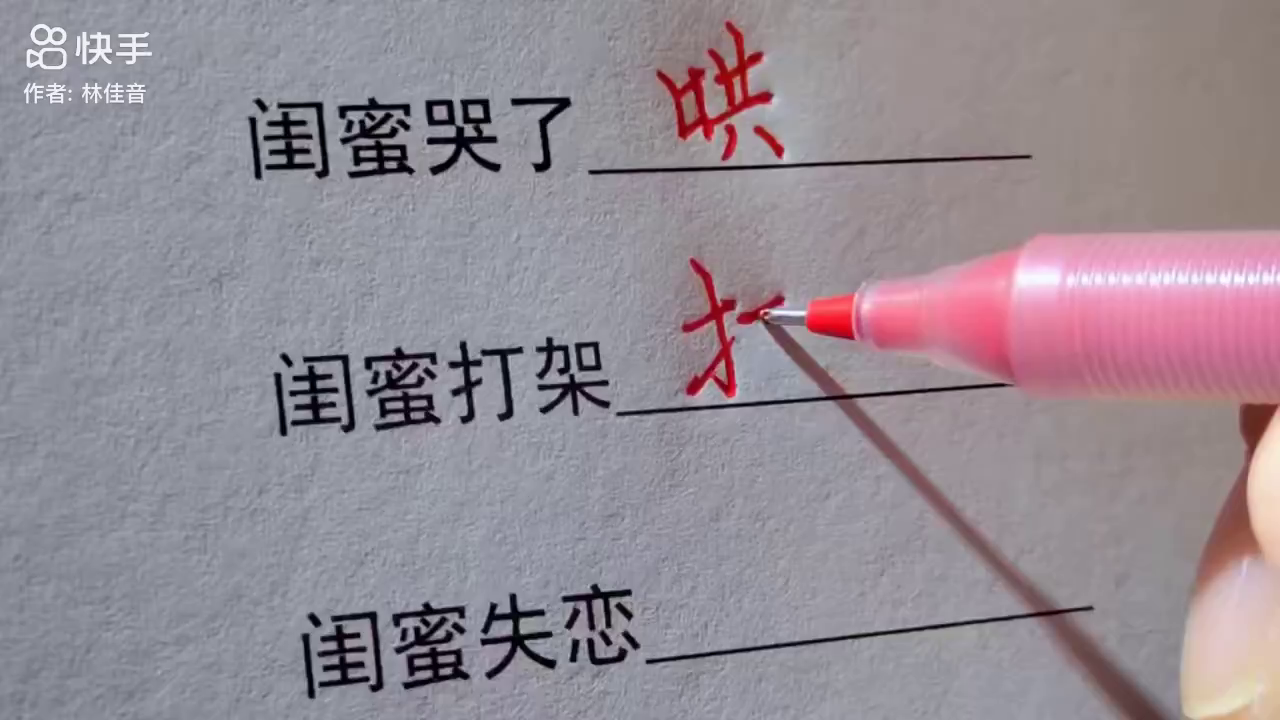 快手
作者: 林佳音
闺蜜哭了 哄
闺蜜打架
闺蜜失恋